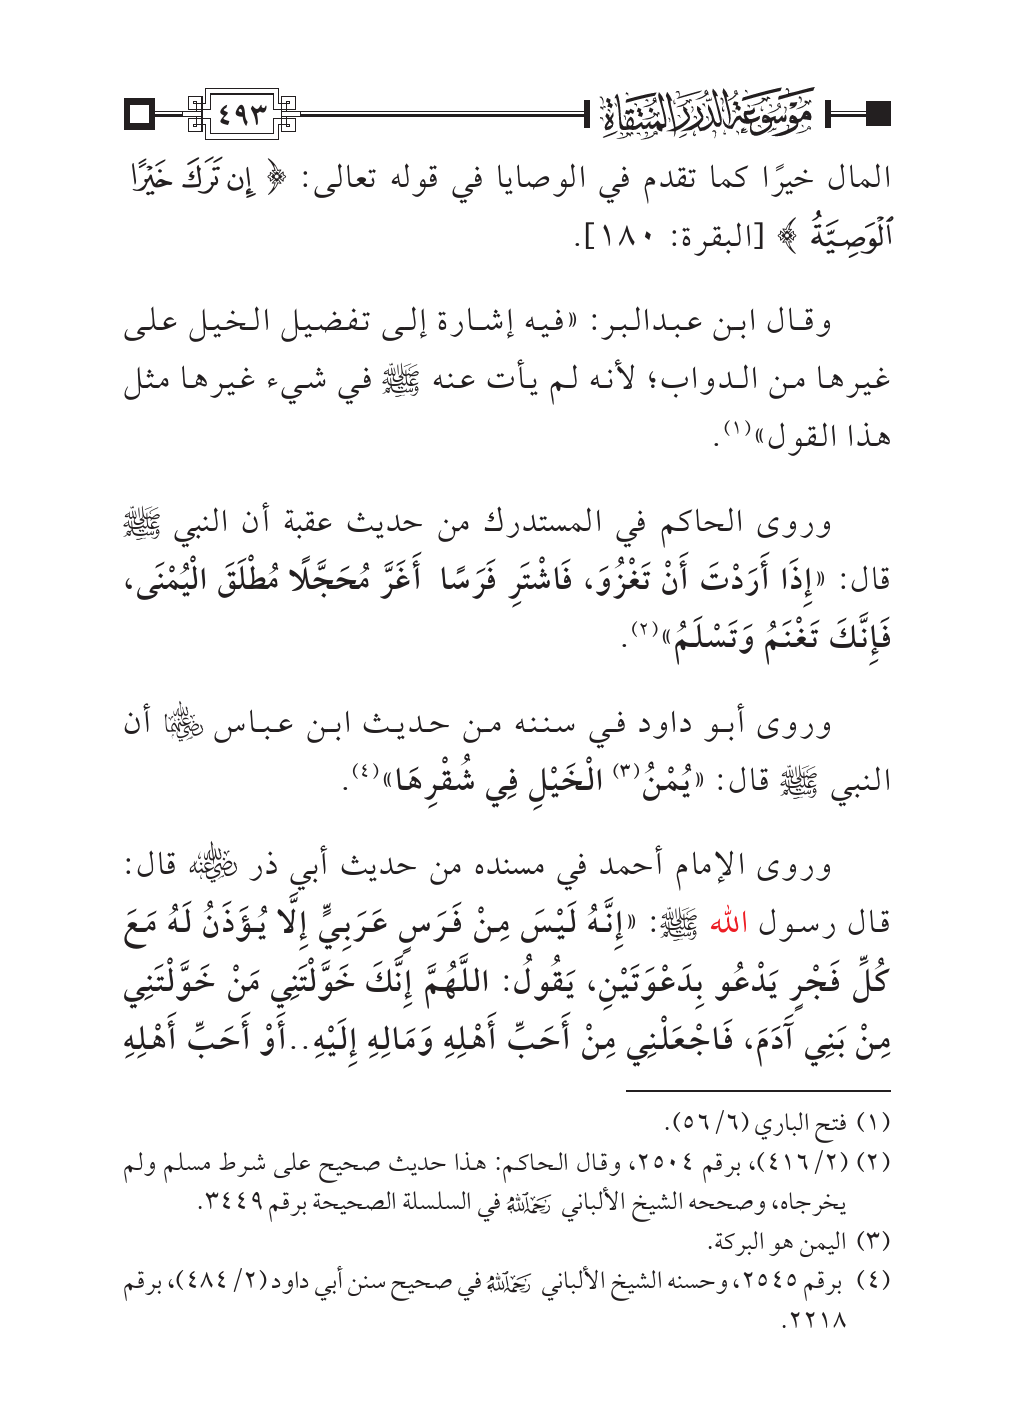 موسوعة الدرر المنتقاة
٤٩٣
المال خيرًا كما تقدم في الوصايا في قوله تعالى: ﴿ إِن تَرَكَ خَيْرًا
ٱلْوَصِيَّةُ ﴾ [البقرة: ١٨٠].
وقال ابن عبدالبر: «فيه إشارة إلى تفضيل الخيل على
غيرها من الدواب؛ لأنه لم يأت عنه ﷺ في شيء غيرها مثل
هذا القول»(١).
وروى الحاكم في المستدرك من حديث عقبة أن النبي ﷺ
قال: «إِذَا أَرَدْتَ أَنْ تَغْزُوَ، فَاشْتَرِ فَرَسًا أَغَرَّ مُحَجَّلًا مُطْلَقَ الْيُمْنَى،
فَإِنَّكَ تَغْنَمُ وَتَسْلَمُ»(٢).
وروى أبو داود في سننه من حديث ابن عباس رضي الله عنهما أن
النبي ﷺ قال: «يُمْنُ(٣) الْخَيْلِ فِي شُقْرِهَا»(٤).
وروى الإمام أحمد في مسنده من حديث أبي ذر رضي الله عنه قال:
قال رسول الله ﷺ: «إِنَّهُ لَيْسَ مِنْ فَرَسٍ عَرَبِيٍّ إِلَّا يُؤَذَنُ لَهُ مَعَ
كُلِّ فَجْرٍ يَدْعُو بِدَعْوَتَيْنِ، يَقُولُ: اللَّهُمَّ إِنَّكَ خَوَّلْتَنِي مَنْ خَوَّلْتَنِي
مِنْ بَنِي آَدَمَ، فَاجْعَلْنِي مِنْ أَحَبِّ أَهْلِهِ وَمَالِهِ إِلَيْهِ..أَوْ أَحَبِّ أَهْلِهِ
(١) فتح الباري (٦/ ٥٦).
(٢) (٢/ ٤١٦)، برقم ٢٥٠٤، وقال الحاكم: هذا حديث صحيح على شرط مسلم ولم
يخرجاه، وصححه الشيخ الألباني رحمه الله في السلسلة الصحيحة برقم ٣٤٤٩.
(٣) اليمن هو البركة.
(٤) برقم ٢٥٤٥، وحسنه الشيخ الألباني رحمه الله في صحيح سنن أبي داود (٢/ ٤٨٤)، برقم
٢٢١٨.